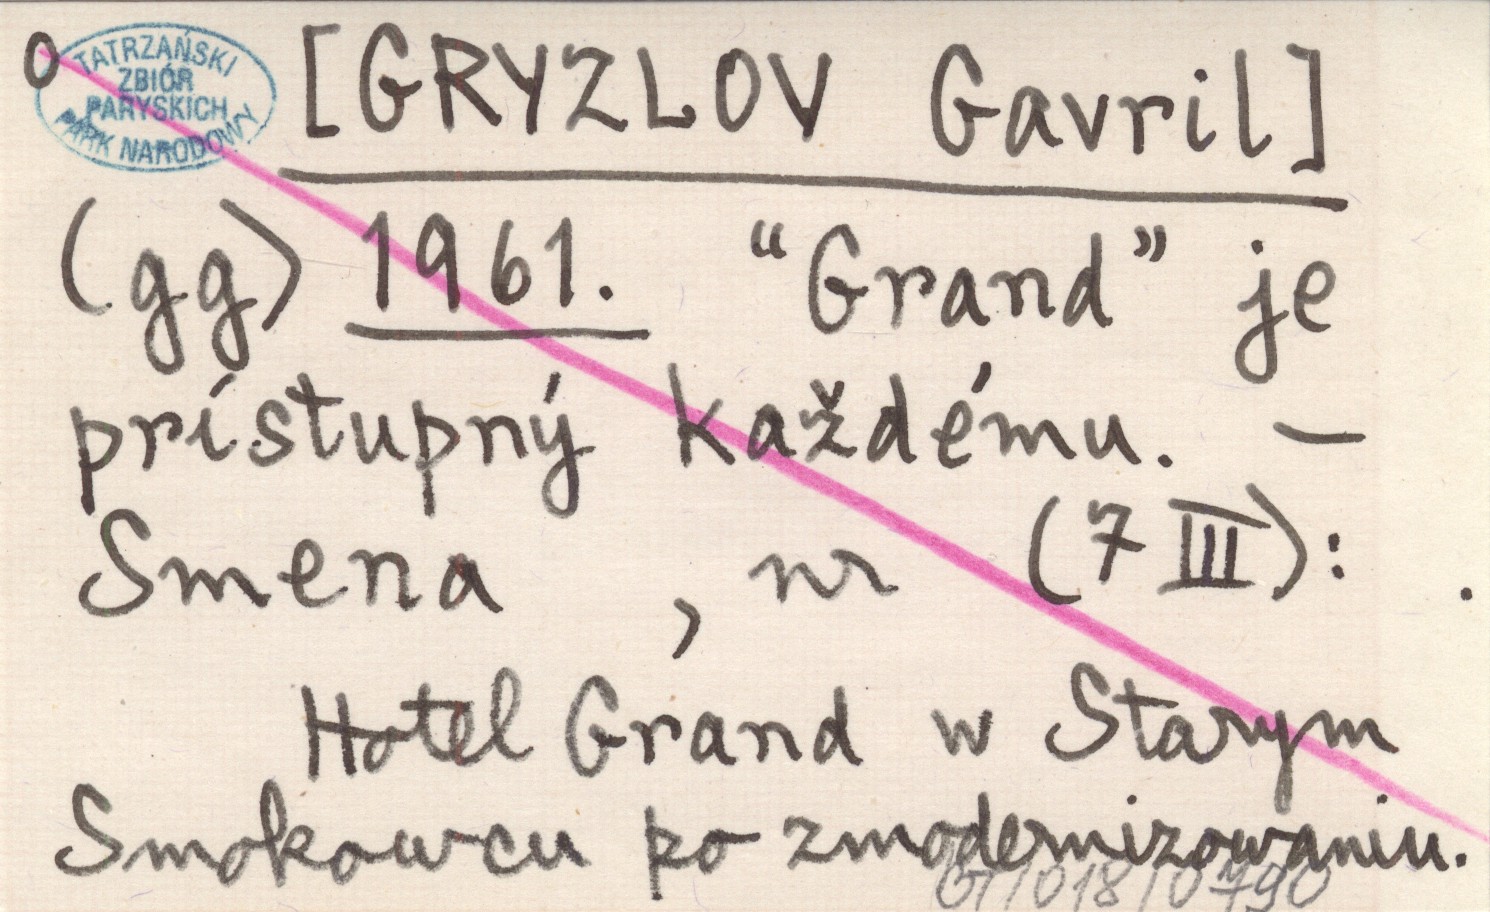 O
TATRZAŃSKI
ZBIÓR
PARYSKICH
PARK NARODOWY
[GRYZLOV Gavril]
(gg) 1961. “Grand” je
prístupný každému. —
Smena , nr (7 III): .
Hotel Grand w Starym
Smokowcu po zmodernizowaniu.
01/018/0790